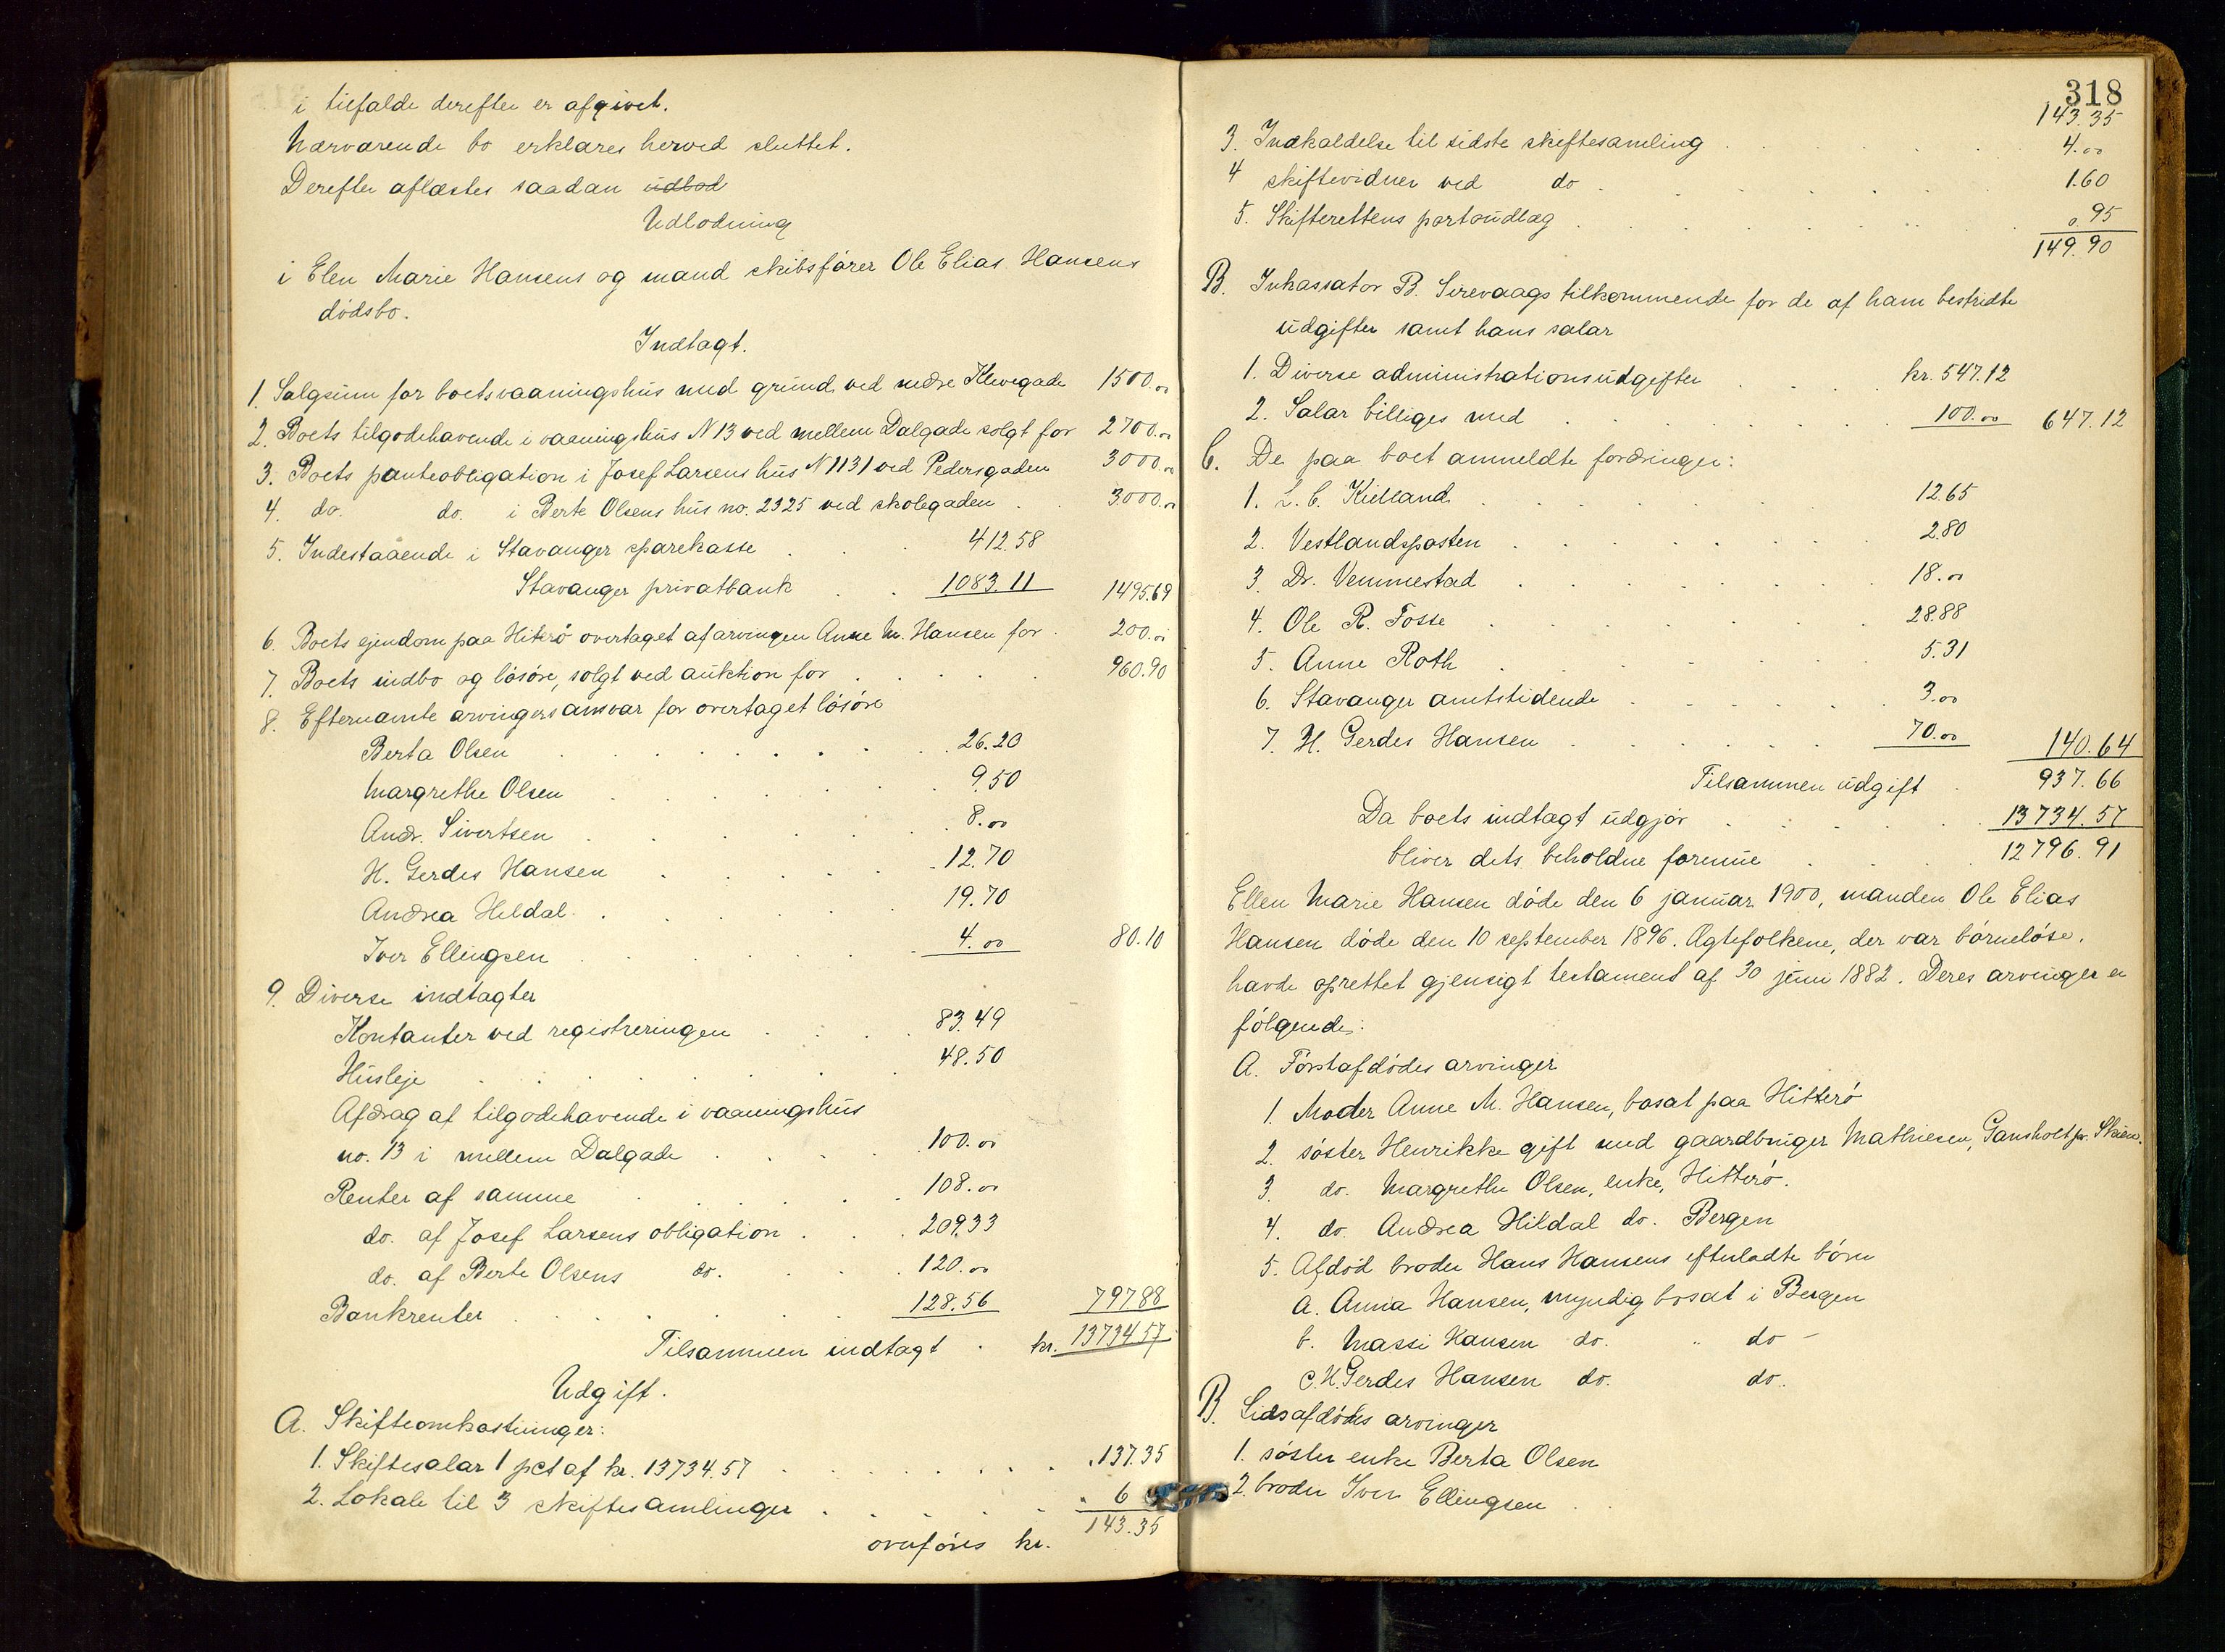 i tilfælde derefter er afgivet.
Nærværende bo erklæres herved sluttet.
Derefter aflæstes saadan udbod
Udlodning
i Elen Marie Hansens og mand skibsfører Ole Elias Hansens
dødsbo.
Indtægt.
1. Salgsum for boets vaaningshus med grund ved nedre Klevegade 1500.00
2. Boets tilgodehavende i vaaningshus N 13 ved mellem Dalgade solgt for 2700.00
3. Boets panteobligation i Josef Larsens hus N 1131 ved Pedersgaden 3000.00
4. do. do. i Berte Olsens hus no. 2325 ved skolegaden . . 3000.00
5. Indestaaende i Stavanger sparekasse . . . 412.58
Stavanger privatbank . . 1083.11 1495.69
6. Boets ejendom paa Hiterø overtaget af arvingen Anne M. Hansen for . 200.00
7. Boets indbo og løsøre, solgt ved auktion for . . . . . 960.90
8. Efternævnte arvingers ansvar for overtaget løsøre
Berta Olsen . . . . . . . . 26.20
Margrethe Olsen . . . . . . 9.50
Andr. Sivertsen . . . . . 8.00
H. Gerdes Hansen . . . . . . 12.70
Andrea Hildal . . . . . 19.70
Iver Ellingsen . . . . . . 4.00 80.10
9. Diverse indtægter
Kontanter ved registreringen . . . 83.49
Husleje . . . . . . . . 48.50
Afdrag af tilgodehavende i vaaningshus
no. 13 i mellem Dalgade . . . . 100.00
Renter af samme . . . . . . 108.00
do. af Josef Larsens obligation . . . 209.33
do. af Berte Olsens do. . . . 120.00
Bankrenter . . . . . . 128.56 797.88
Tilsammen indtægt . kr. 13734.57
Udgift.
A. Skifteomkostninger:
1. Skiftesalær 1 pct af kr. 13734.57 . . . . . . . 137.35
2. Lokale til 3 skiftesamlinger . . . . . " 6
143.35
overføres kr.
318
143.35
3. Indkaldelse til sidste skiftesamling . . . . . . 4.00
4 skiftevidner ved do . . . . . . 1.60
5. Skifterettens portoudlæg . . . . . . . 0.95
149.90
B. Inkassator B. Sirevaags tilkommende for de af ham bestridte
udgifter samt hans salær
1. Diverse administrationsudgifter . . . kr. 547.12
2. Salær billiges med . . . . . . . 100.00 647.12
C. De paa boet anmeldte fordringer:
1. L. C. Kielland . . . . . . 12.65
2. Vestlandsposten . . . . . . . 2.80
3. Dr. Vemmestad . . . . . . . 18.00
4. Ole R. Fosse . . . . . . 28.88
5. Anne Roth . . . . . . 5.31
6. Stavanger amtstidende . . . . . . 3.00
7. H. Gerdes Hansen . . . . . 70.00 140.64
Tilsammen udgift . 937.66
Da boets indtægt udgjør . . . . . . 13734.57
bliver dets beholdne formue . . . . 12796.91
Ellen Marie Hansen døde den 6 januar 1900, manden Ole Elias
Hansen døde den 10 september 1896. Ægtefolkene, der var børneløse,
havde oprettet gjensigt testament af 30 juni 1882. Deres arvinger er
følgende:
A. Førstafdødes arvinger
1. Moder Anne M. Hansen, bosat paa Hitterø
2. søster Henrikke gift med gaardbruger Mathiesen, Gansholt pr. Skien.
3. do. Margrethe Olsen, enke, Hitterø.
4. do. Andrea Hildal do. Bergen
5. Afdød broder Hans Hansens efterladte børn
a. Anna Hansen, myndig bosat i Bergen
b. Massi Hansen do. " do –
c. H. Gerdes Hansen do. do.
B. Sidsafdødes arvinger
1. søster enke Berta Olsen
2. broder Iver Ellingsen .